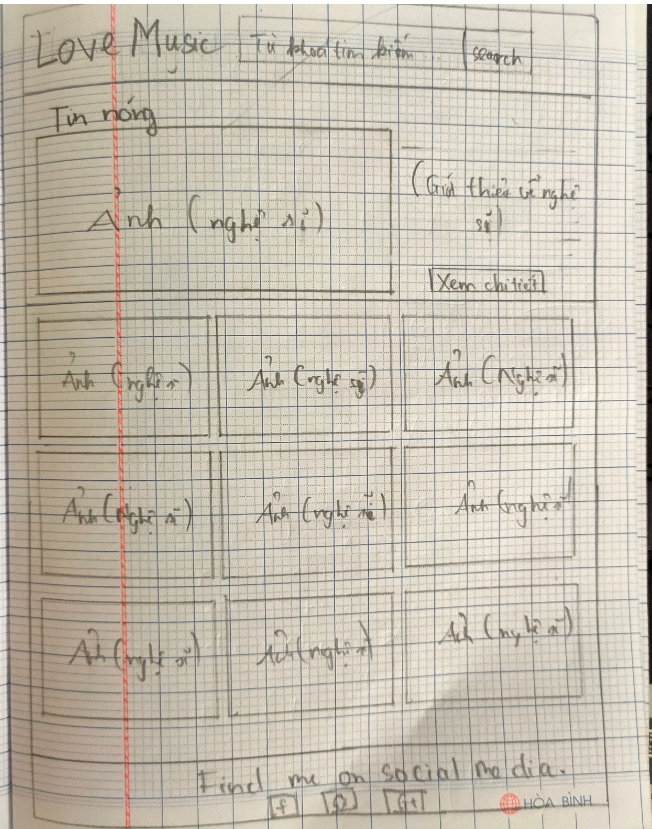 Love Music Từ khoá tìm kiếm... search
Tin nóng
Ảnh (nghệ sĩ)
(Giới thiệu về nghệ
sĩ)
Xem chi tiết
Ảnh (nghệ sĩ) Ảnh (nghệ sỹ) Ảnh (Nghệ sĩ)
Ảnh (Nghệ sĩ) Ảnh (nghệ sĩ) Ảnh (nghệ sĩ)
Ảnh (nghệ sĩ) Ảnh (nghệ sĩ) Ảnh (nghệ sĩ)
Find me on social media.
f P G+
HÒA BÌNH